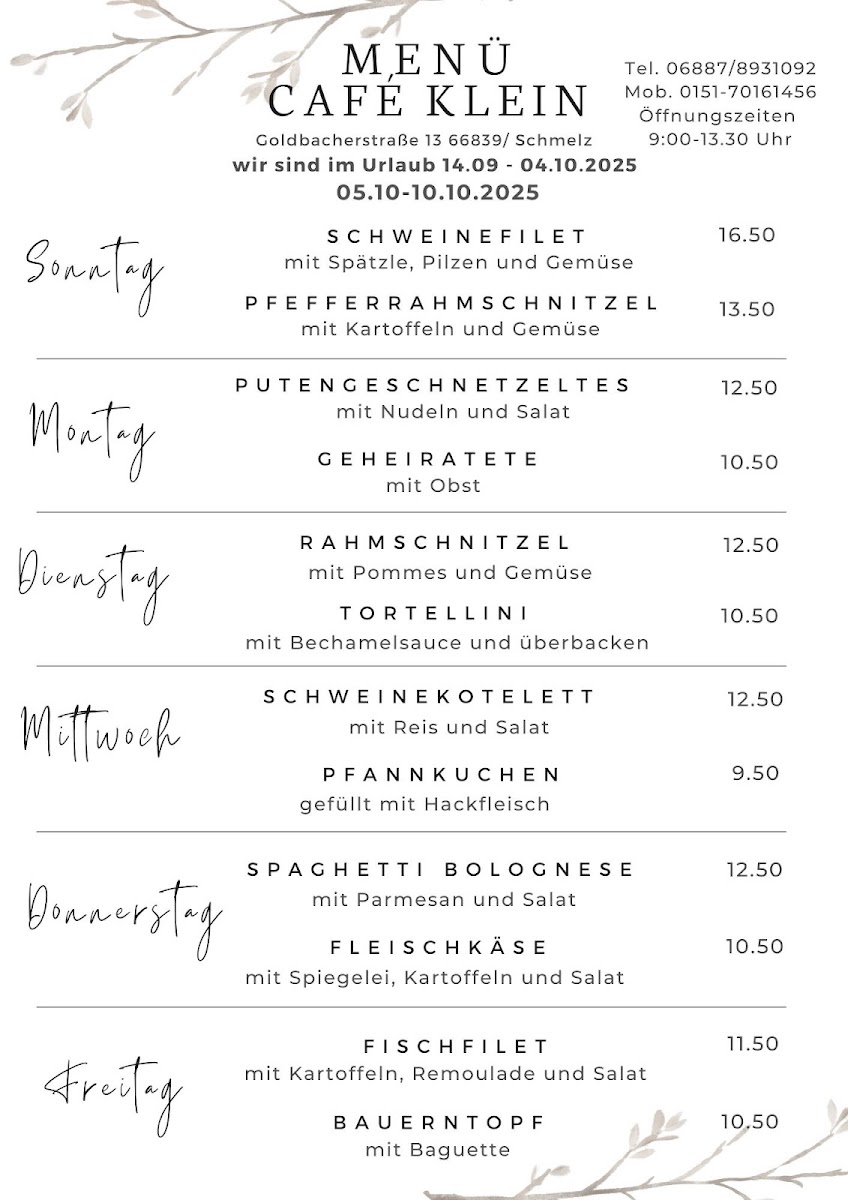 MENÜ
CAFÉ KLEIN
Tel. 06887/8931092
Mob. 0151-70161456
Öffnungszeiten
9:00-13.30 Uhr
Goldbacherstraße 13 66839/ Schmelz
wir sind im Urlaub 14.09 - 04.10.2025
05.10-10.10.2025
Sonntag
SCHWEINEFILET 16.50
mit Spätzle, Pilzen und Gemüse
PFEFFERRAHMSCHNITZEL 13.50
mit Kartoffeln und Gemüse
Montag
PUTENGESCHNETZELTES 12.50
mit Nudeln und Salat
GEHEIRATETE 10.50
mit Obst
Dienstag
RAHMSCHNITZEL 12.50
mit Pommes und Gemüse
TORTELLINI 10.50
mit Bechamelsauce und überbacken
Mittwoch
SCHWEINEKOTELETT 12.50
mit Reis und Salat
PFANNKUCHEN 9.50
gefüllt mit Hackfleisch
Donnerstag
SPAGHETTI BOLOGNESE 12.50
mit Parmesan und Salat
FLEISCHKÄSE 10.50
mit Spiegelei, Kartoffeln und Salat
Freitag
FISCHFILET 11.50
mit Kartoffeln, Remoulade und Salat
BAUERNTOPF 10.50
mit Baguette